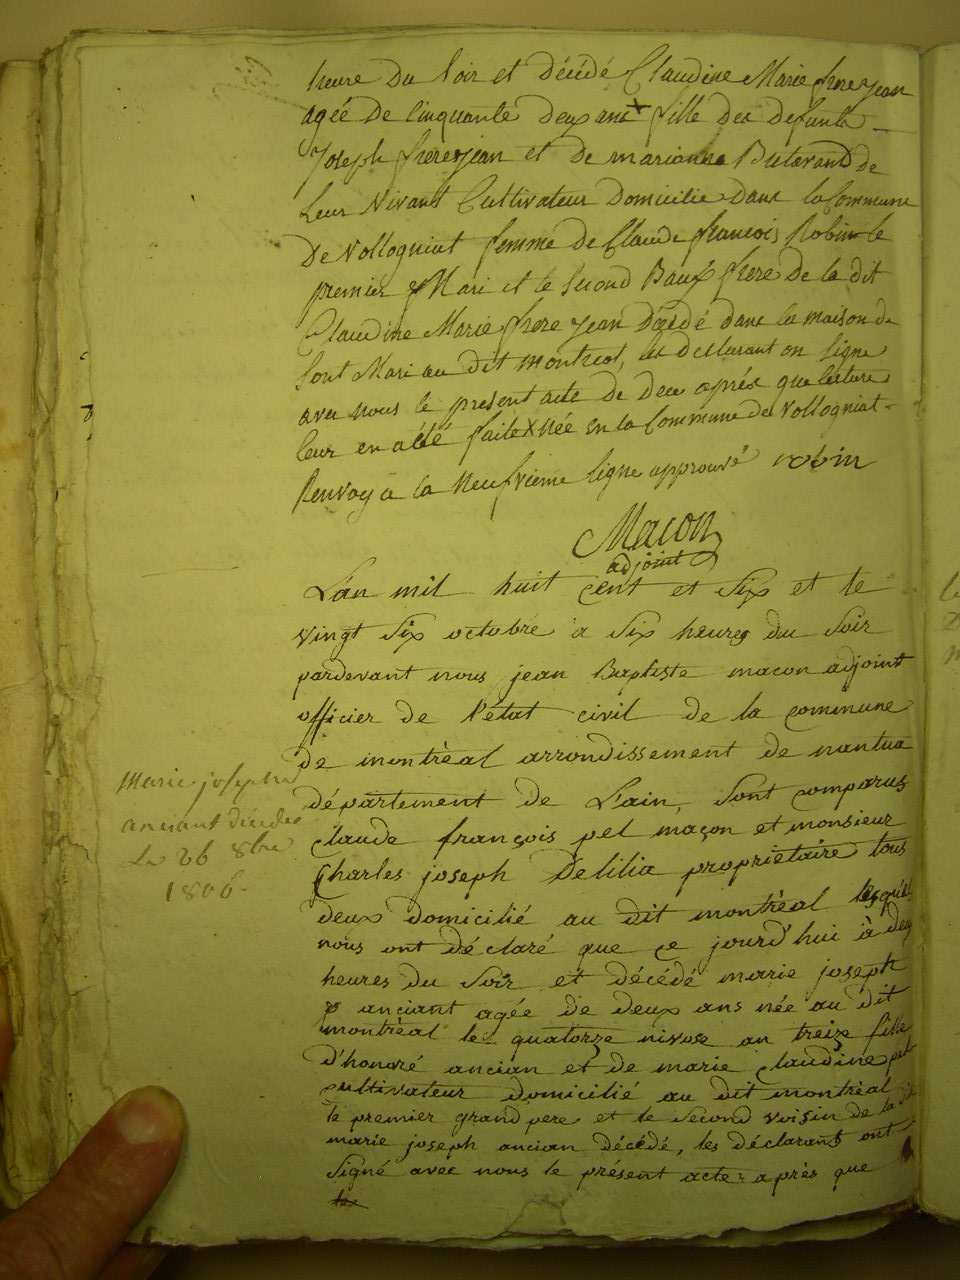 heure Du Soir et décédé Claudine Marie frere jean
agée De Cinquante deux ans X fille des defunts
Joseph frere jean et de marianne Butavand de
Leur Vivant Cultivateur Domicilie Dans la Commune
De Vollogniat femme De Claude francois Robin le
premier Mari et le Second Baux frere De la dit
Claudine Marie frere jean Décédé dans la maison de
Sont Mari au Dit montreal, les Declarant on Signe
avec nous le present acte de Deces aprés que lecture
leur en a été faite X Née en la Commune de Vollogniat
Renvoy a la Neufvieme ligne approuvé robin
Macon
adjoint
L'an mil huit cent et Six et le
vingt Six octobre a Six heures du Soir
pardevant nous jean Baptiste macon adjoint
officier de l'état civil de la commune
de montrèal arrondissement de nantua
département de L'ain, Sont comparus
claude françois pel maçon et monsieur
Charles joseph Delilia propriètaire tous
deux domicilié au dit montréal lesquels
nous ont déclaré que ce jourd'hui à deux
heures du Soir et décédé marie joseph
anciant agée de deux ans née au dit
montréal le quatorze nivose an treize fille
d'honoré ancian et de marie claudine pel
cultivateur domicilié au dit montréal
le premier grand pere et le second voisin de la dit
marie joseph ancian décédé, les déclarant ont
Signé avec nous le présent acte après que
marie josephe
anciant décédée
Le 26 8bre
1806